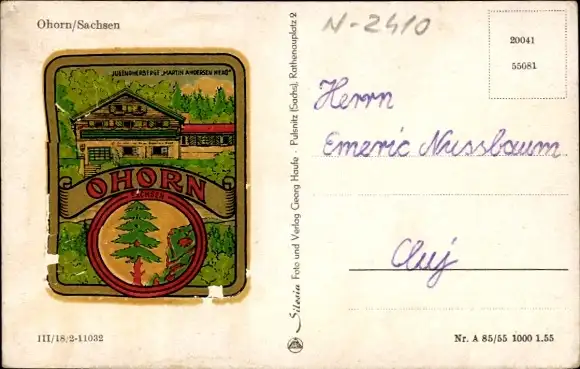 Ohorn/Sachsen
JUGENDHERBERGE „MARTIN ANDERSEN NEXÖ"
OHORN
SACHSEN
III/18/2-11032
Silesia Foto und Verlag Georg Haufe · Pulsnitz (Sachs), Rathenauplatz 2
N-2410
20041
55081
Herrn
Emeric Nussbaum
Cluj
Nr. A 85/55 1000 1.55